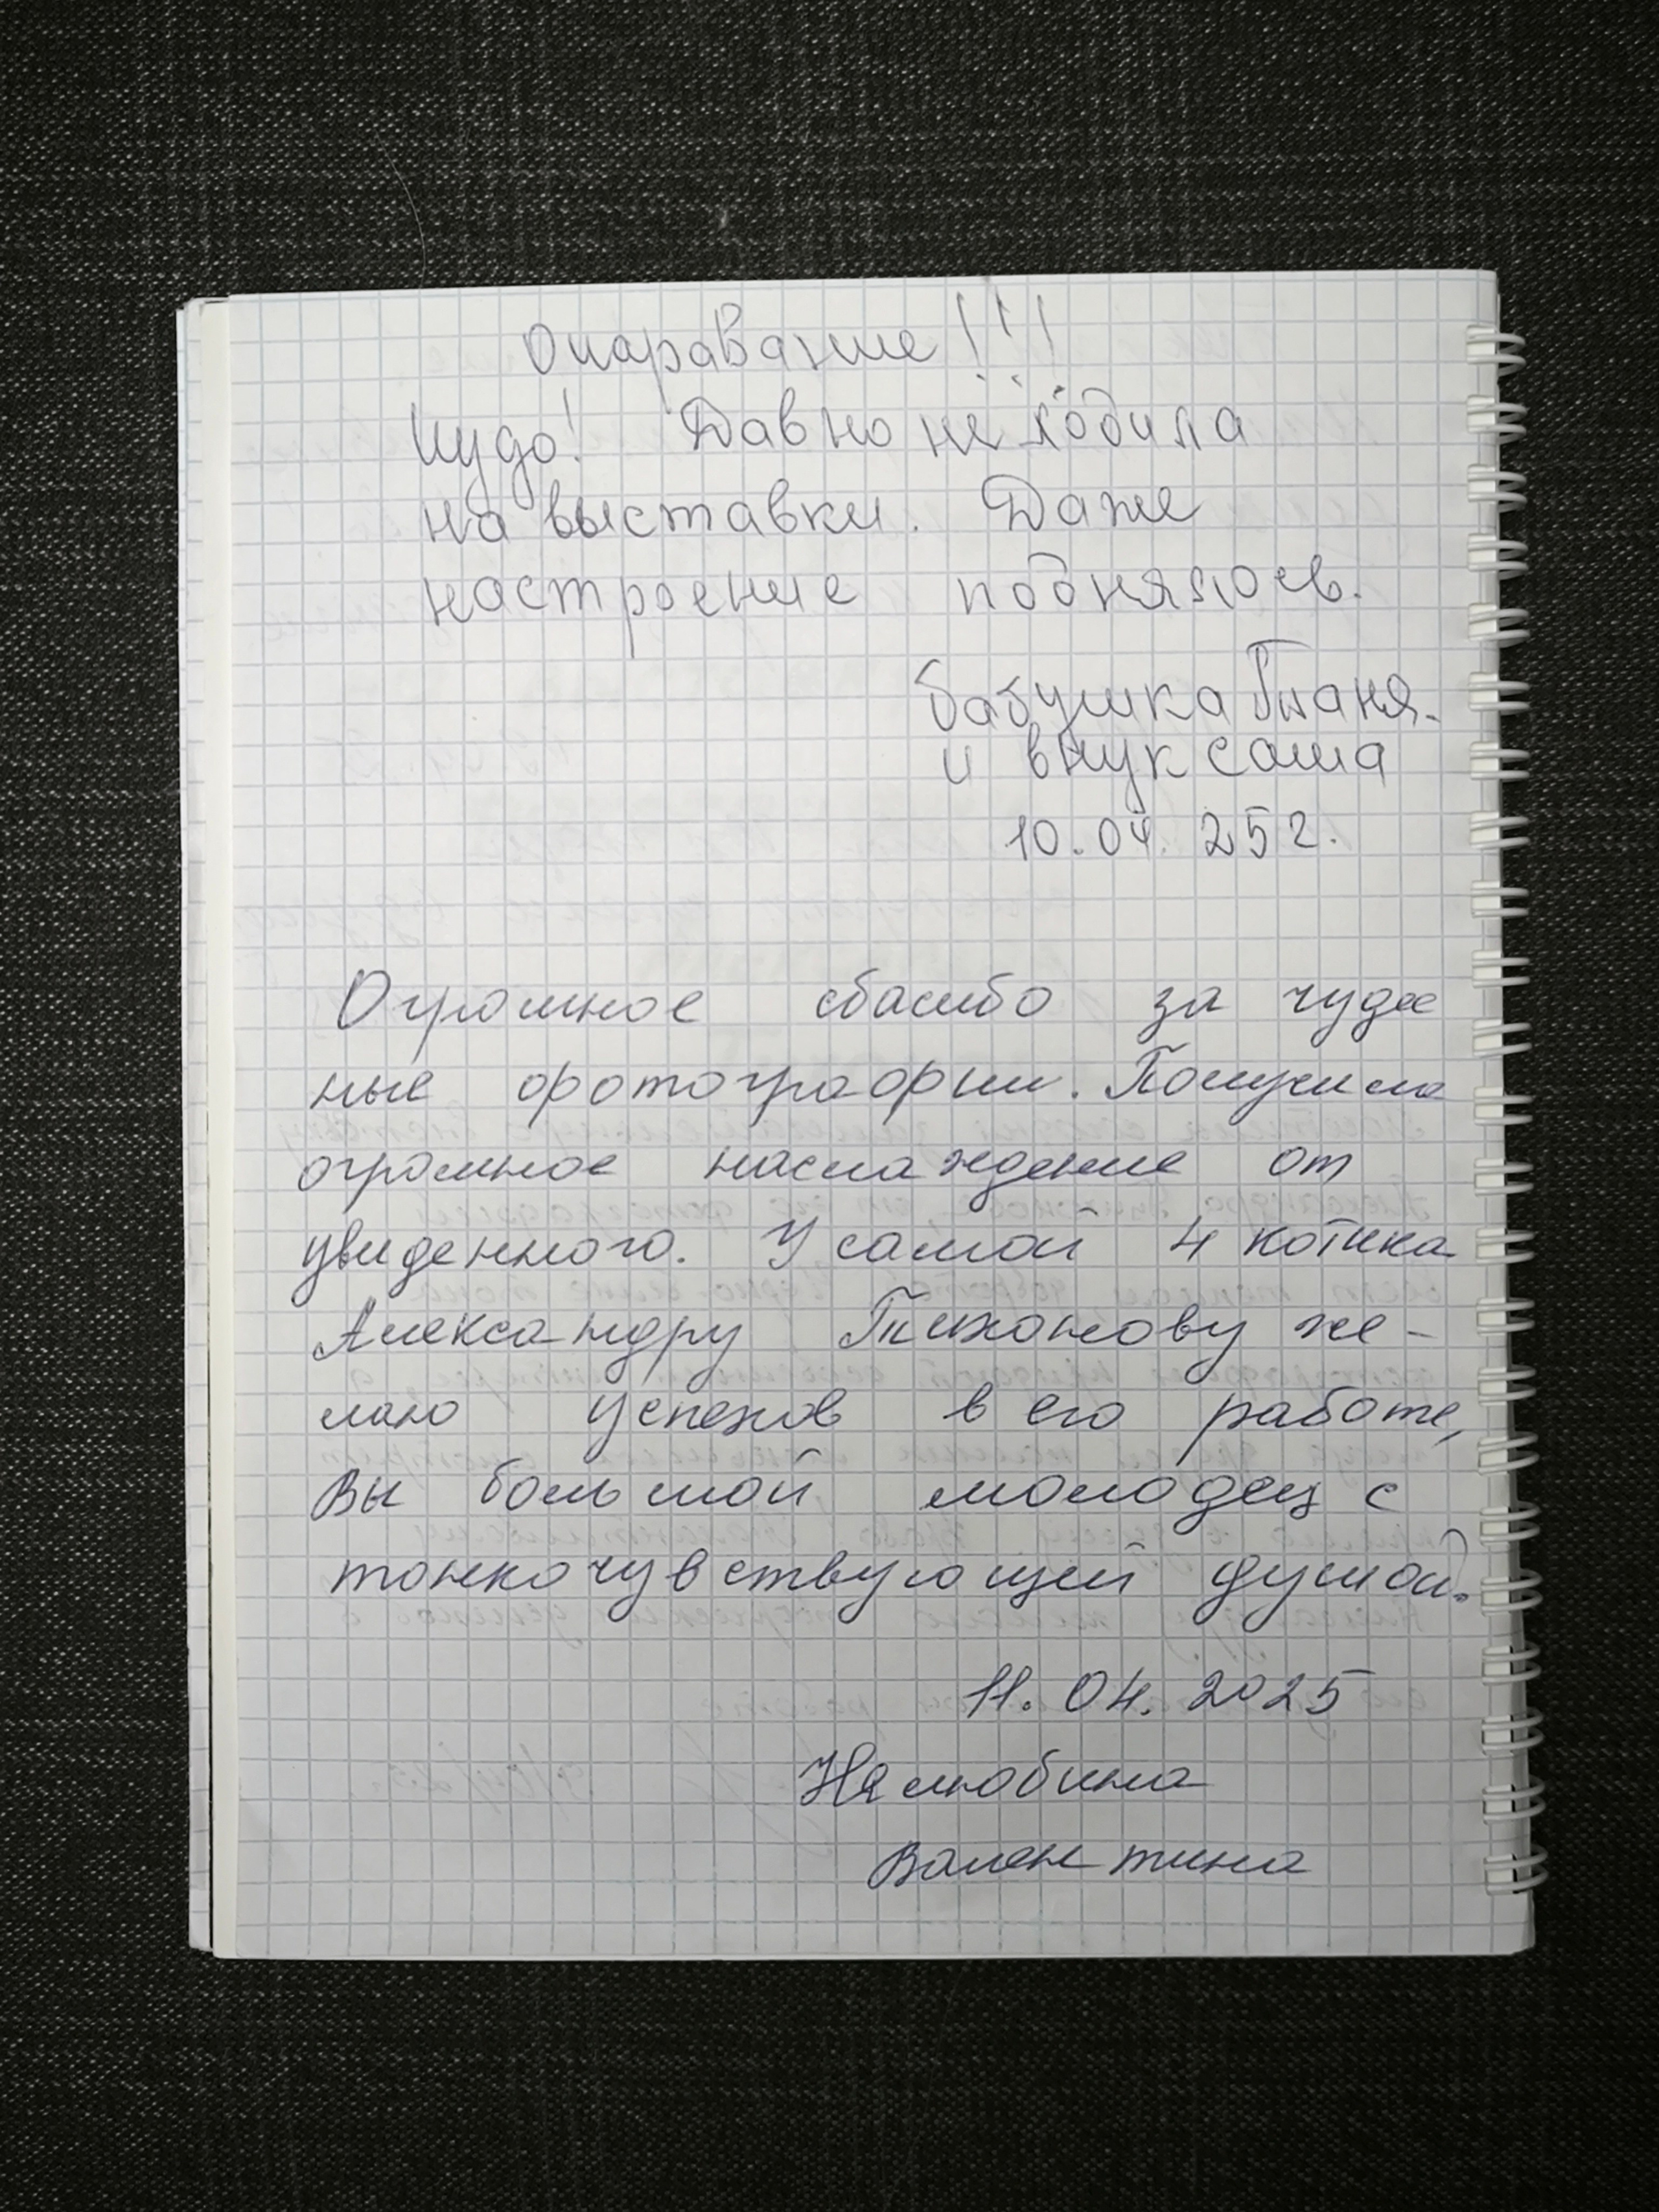 Очарование!!!
Чудо! Давно не ходила
на выставки. Даже
настроение поднялось.
бабушка Таня.
и внук Саша
10.04.25г.
Огромное спасибо за чудес
ные фотографии. Получила
огромное наслаждение от
увиденного. У самой 4 котика
Александру Тихонову же-
лаю успехов в его работе,
Вы большой молодец с
тонкочувствующей душой.
11.04.2025
Нелюбина
Валентина